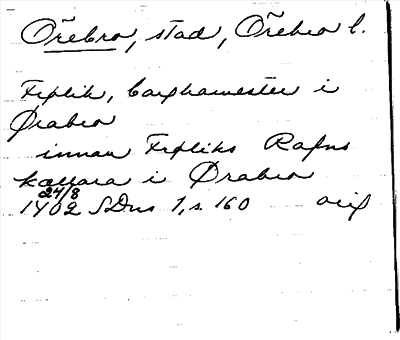 Örebro, stad, Örebro l.
Feplik, borghamester i
Ørabro
innan Fepliks Rafns
kællara i Ørabro
24/8
1402 SDns 1, s. 160 orig